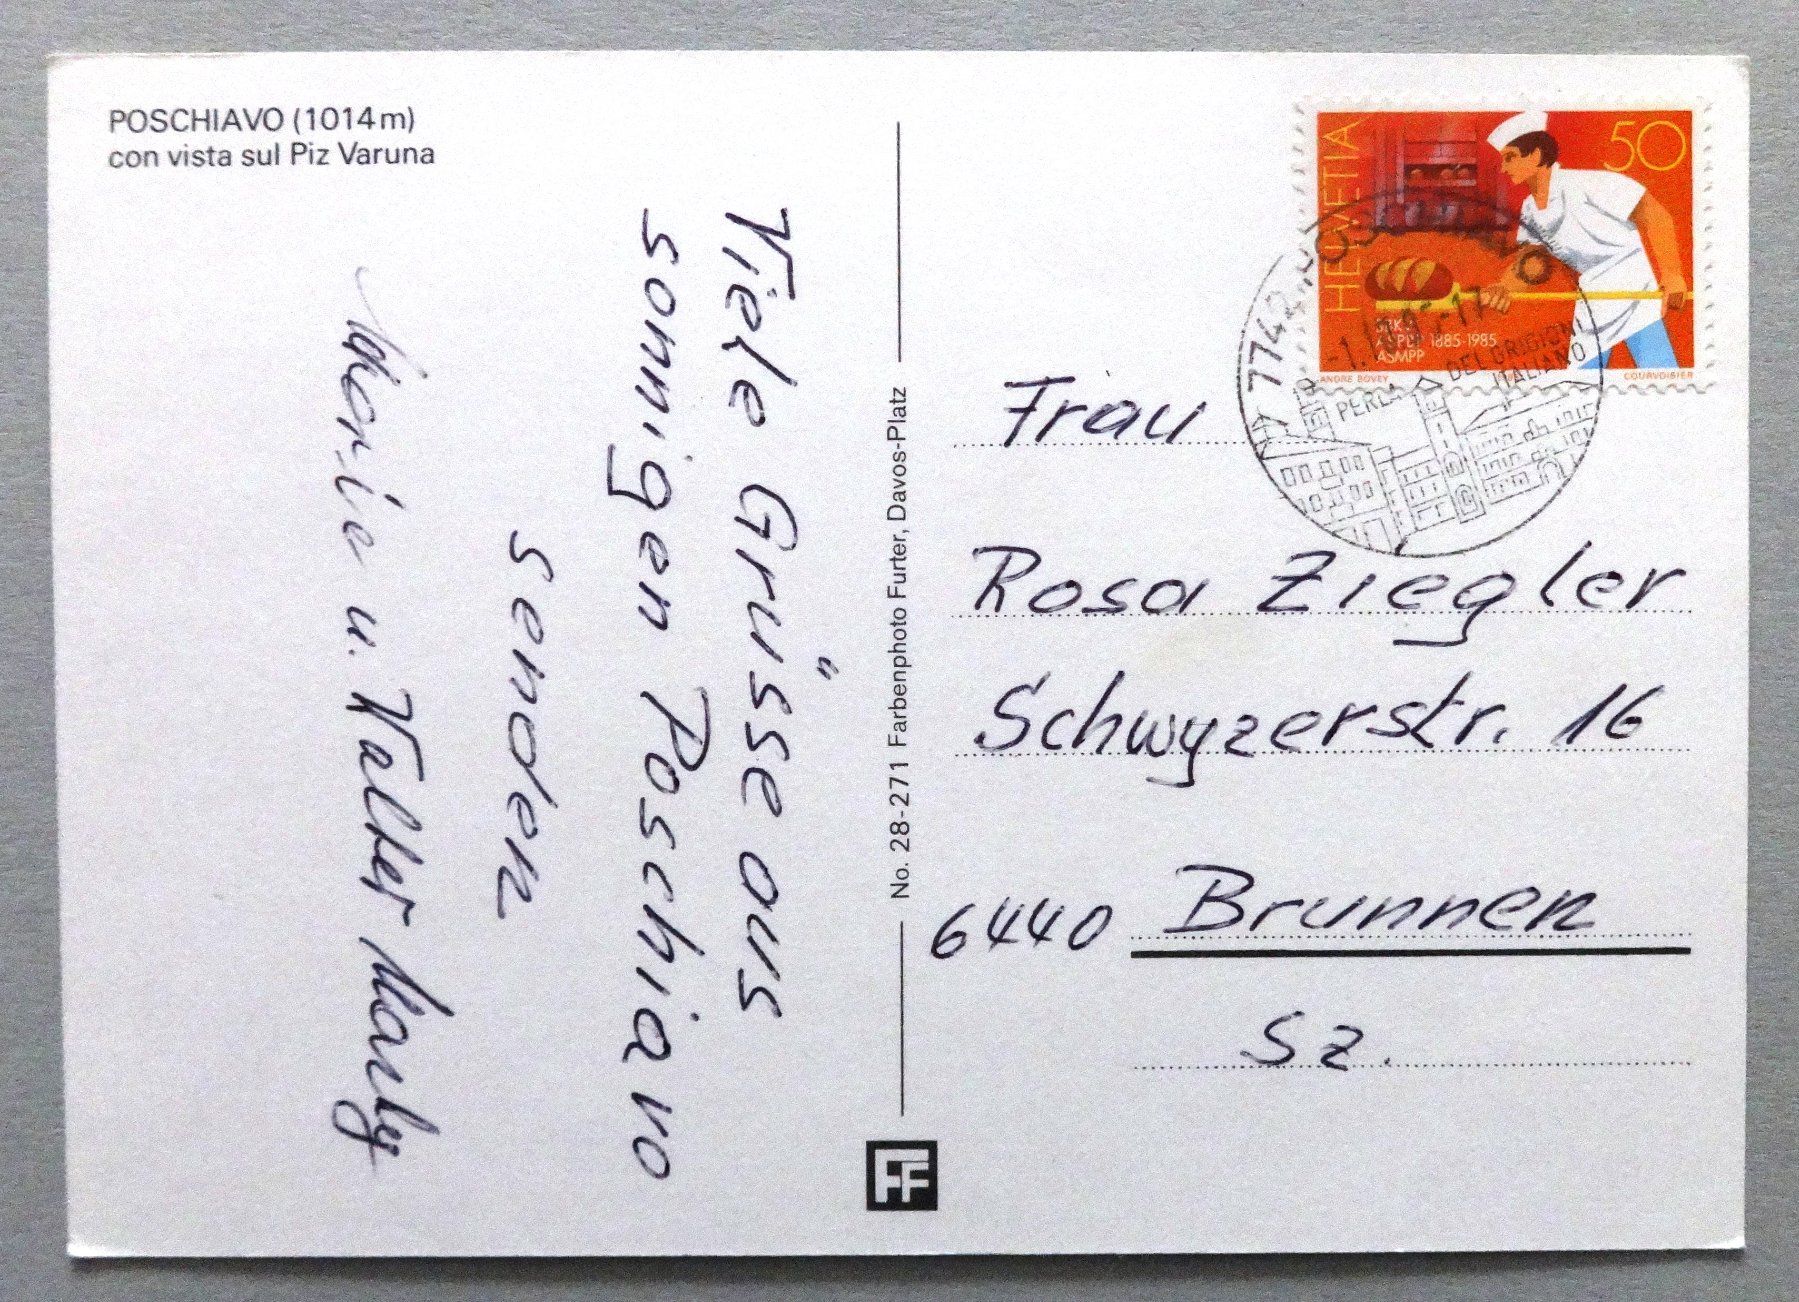 POSCHIAVO (1014 m)
con vista sul Piz Varuna
Viele Grüsse aus
sonnigen Poschiavo
senden
Maria u. Walter
No. 28-271 Farbenphoto Furter, Davos-Platz
FF
HELVETIA
50
1885-1985
ASMPP
ANDRE BOVEY
COURVOISIER
7742 POSCHIAVO
PERLA
DEL GRIGIONI
ITALIANO
Frau
Rosa Ziegler
Schwyzerstr. 16
6440 Brunnen
Sz.